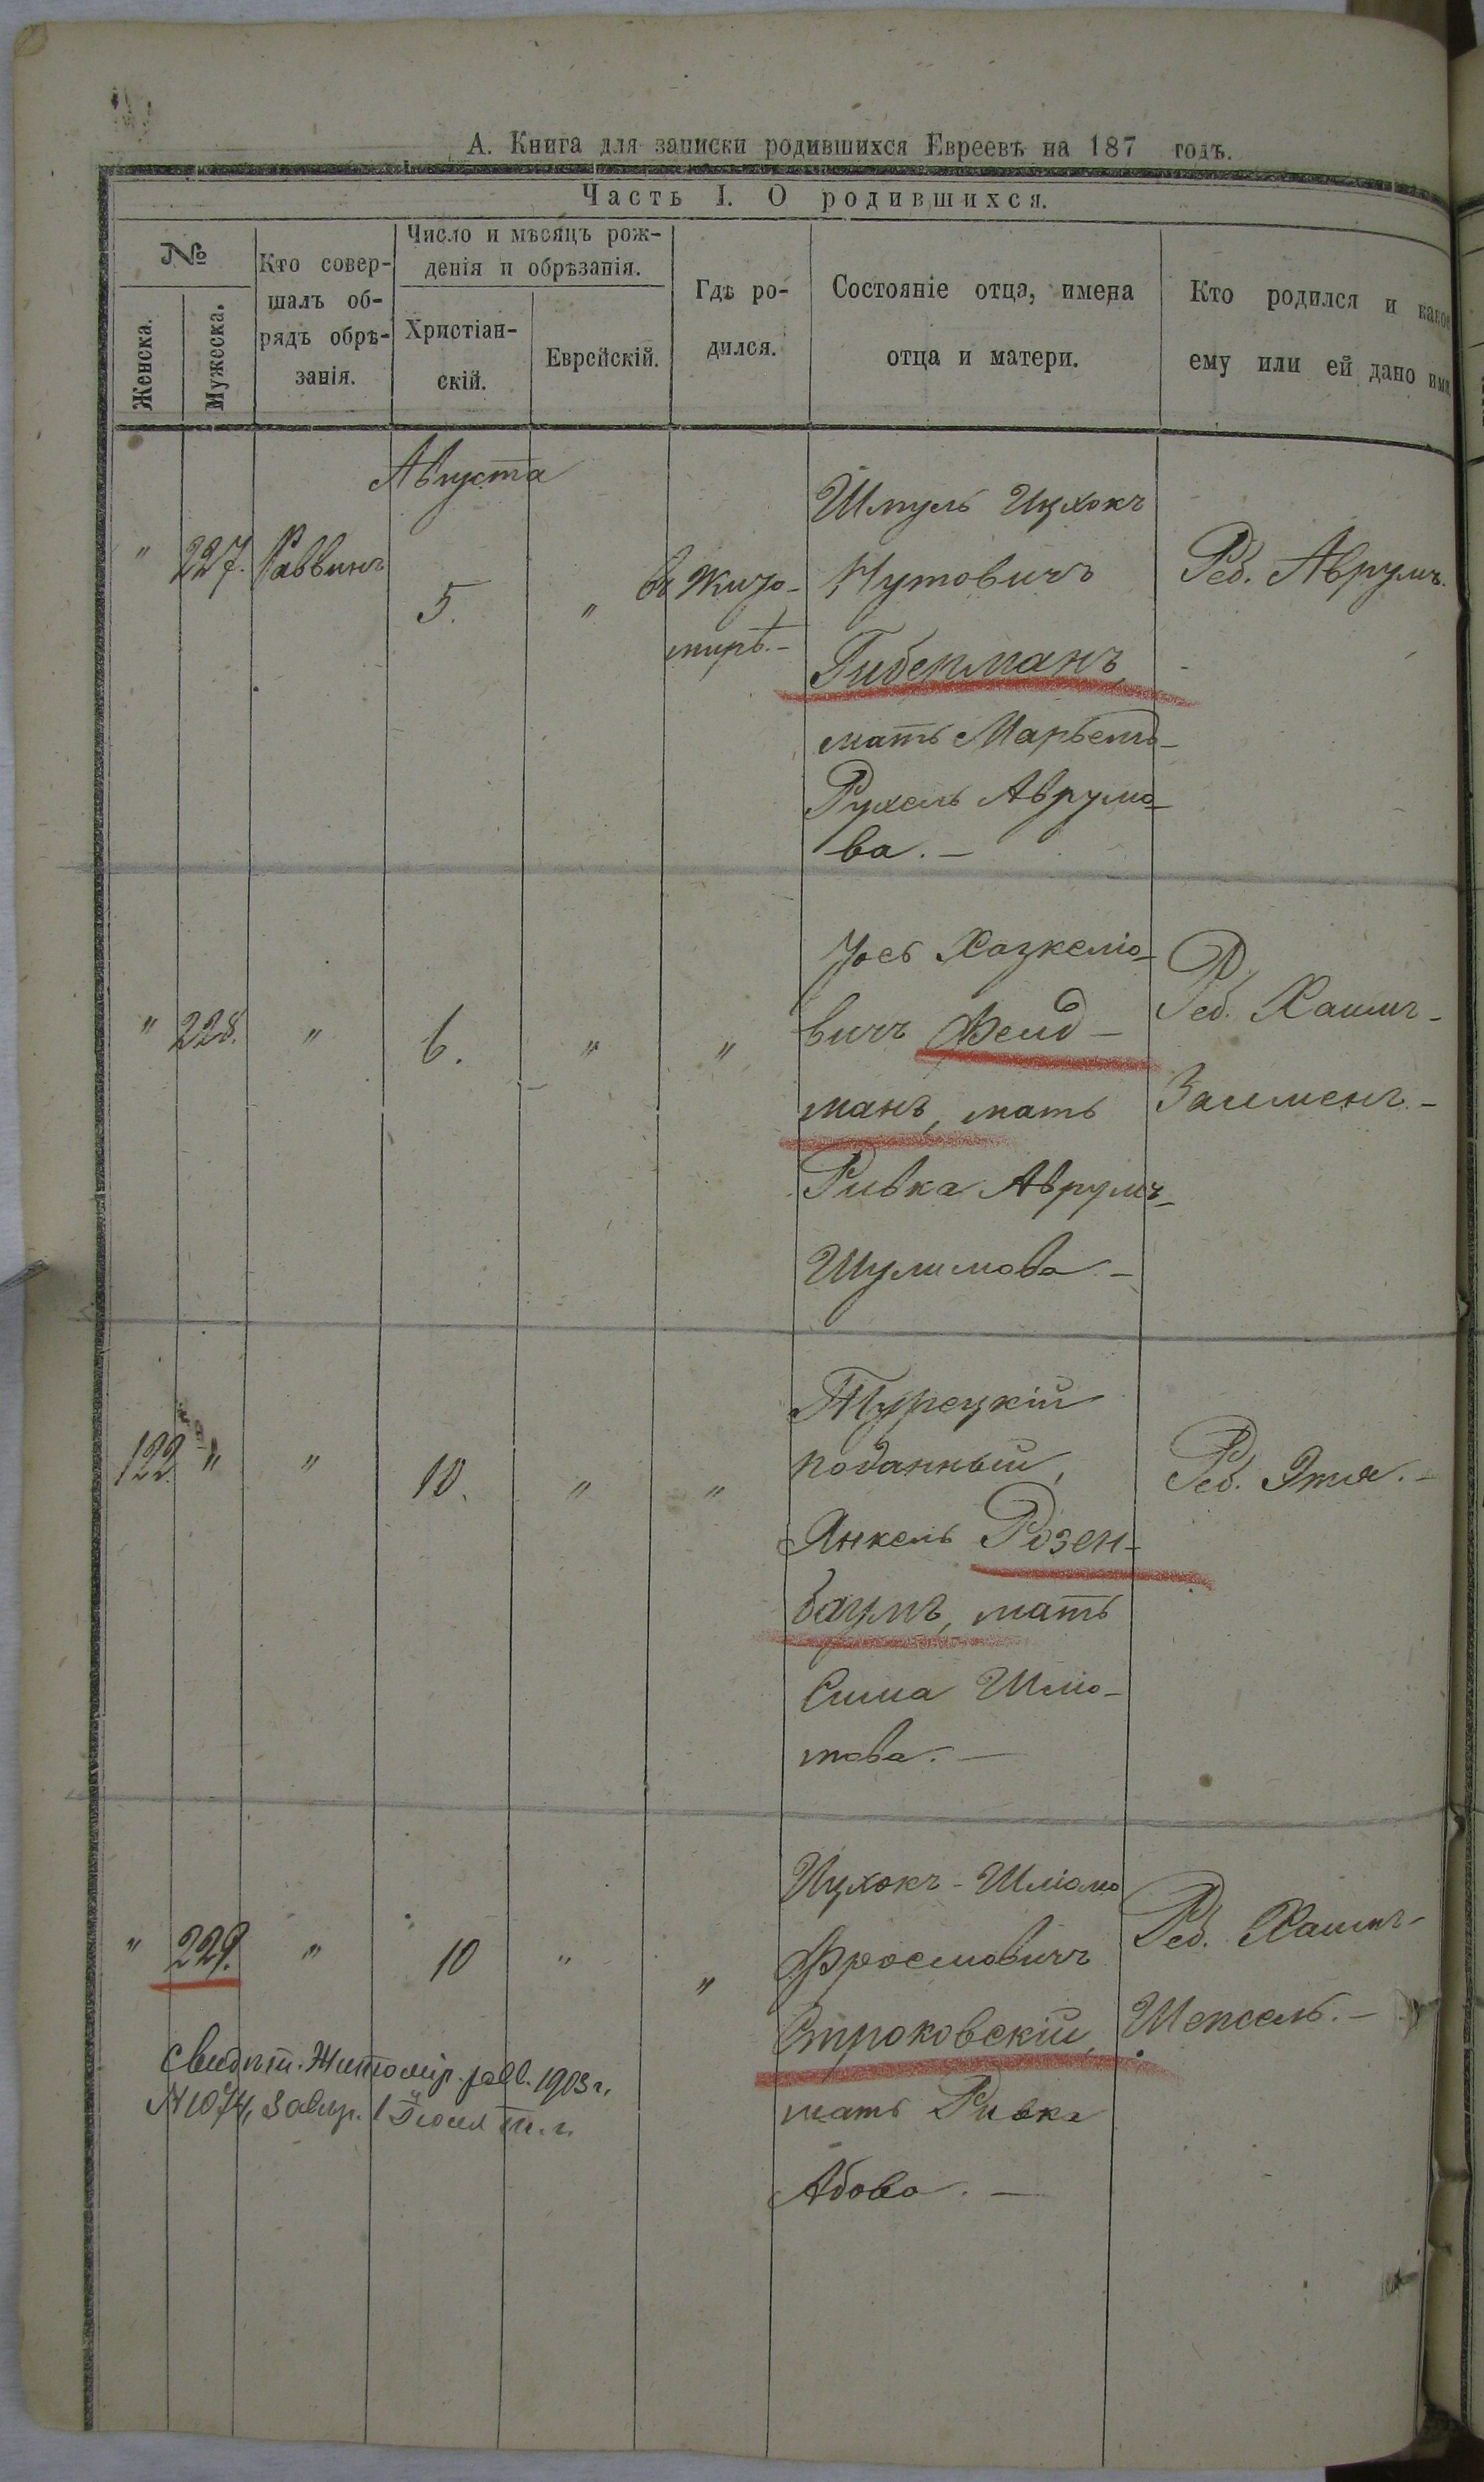 А. Книга для записки родившихся Евреевъ на 187 годъ.
Часть I. О родившихся.
№
Женска.
Мужеска.
Кто совер-
шалъ об-
рядъ обрѣ-
занія.
Число и мѣсяцъ рож-
денія и обрѣзанія.
Христіан-
скій.
Еврейскій.
Гдѣ ро-
дился.
Состояніе отца, имена
отца и матери.
Кто родился и какое
ему или ей дано имя.
Августа
" 227. Раввинъ 5. "
въ Жито-
мирѣ.-
Шмуль Ицхокъ
Нутовичъ
Гиберманъ,
мать Марьемъ-
Рухель Аврумо-
ва.-
Реб. Аврумъ.
" 228. " 6. " "
Іось Хазкеліо-
вичъ Фельд-
манъ, мать
Ривка Аврумъ-
Шулимова.-
Реб. Хаимъ-
Залменъ.-
122. " " 10. " "
Турецкій
поданный,
Янкель Розен-
баумъ, мать
Сима Шлио-
мова.-
Реб. Этя.-
" 229. " 10 " "
Ицхокъ-Шліома
Фроемовичъ
Строковскій,
мать Ривка
Абова.-
Реб. Хаимъ-
Шепсель.-
Свидѣт. Житомір. равв. 1903 г.
№ 1074, завѣр. 1 Іюля т.г.